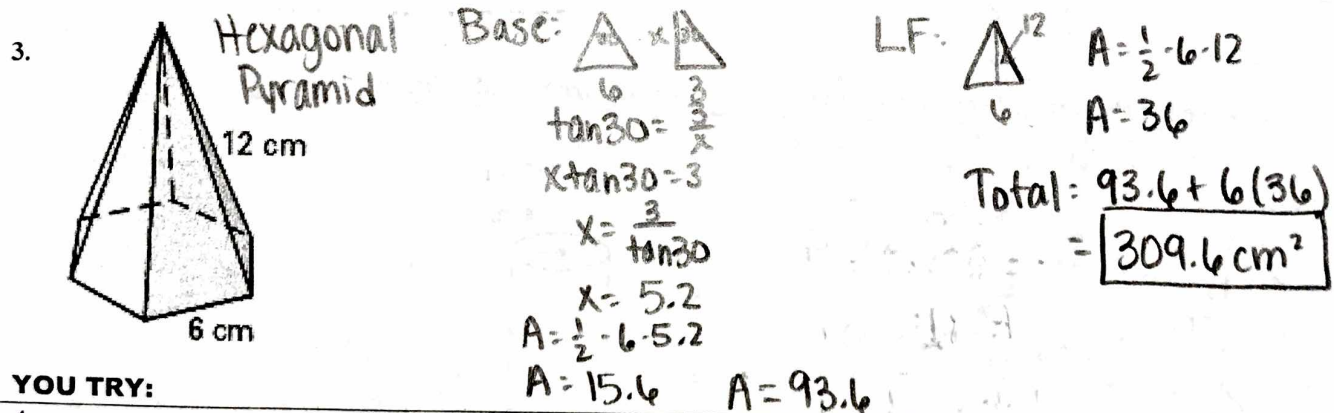 3.
Hexagonal
Pyramid
12 cm
6 cm
Base:
x
6
3
tan30 = 3/x
xtan30 = 3
x = 3/tan30
x = 5.2
A = 1/2 · 6 · 5.2
A = 15.6
A = 93.6
LF:
12
6
A = 1/2 · 6 · 12
A = 36
Total = 93.6 + 6(36)
= 309.6 cm²
YOU TRY: